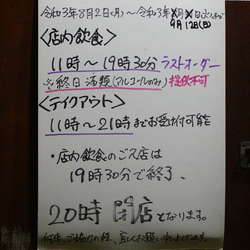 令和3年8月2日(月)〜令和3年月日
9月12日(日)
〈店内飲食〉
11時〜19時30分ラストオーダー
※終日酒類(アルコールのみ)提供不可
〈テイクアウト〉
11時〜21時までお受け付可能
・店内飲食のご入店は
19時30分で終了、
20時閉店となります。
何卒、ご協力の程、宜しくお願い致します。